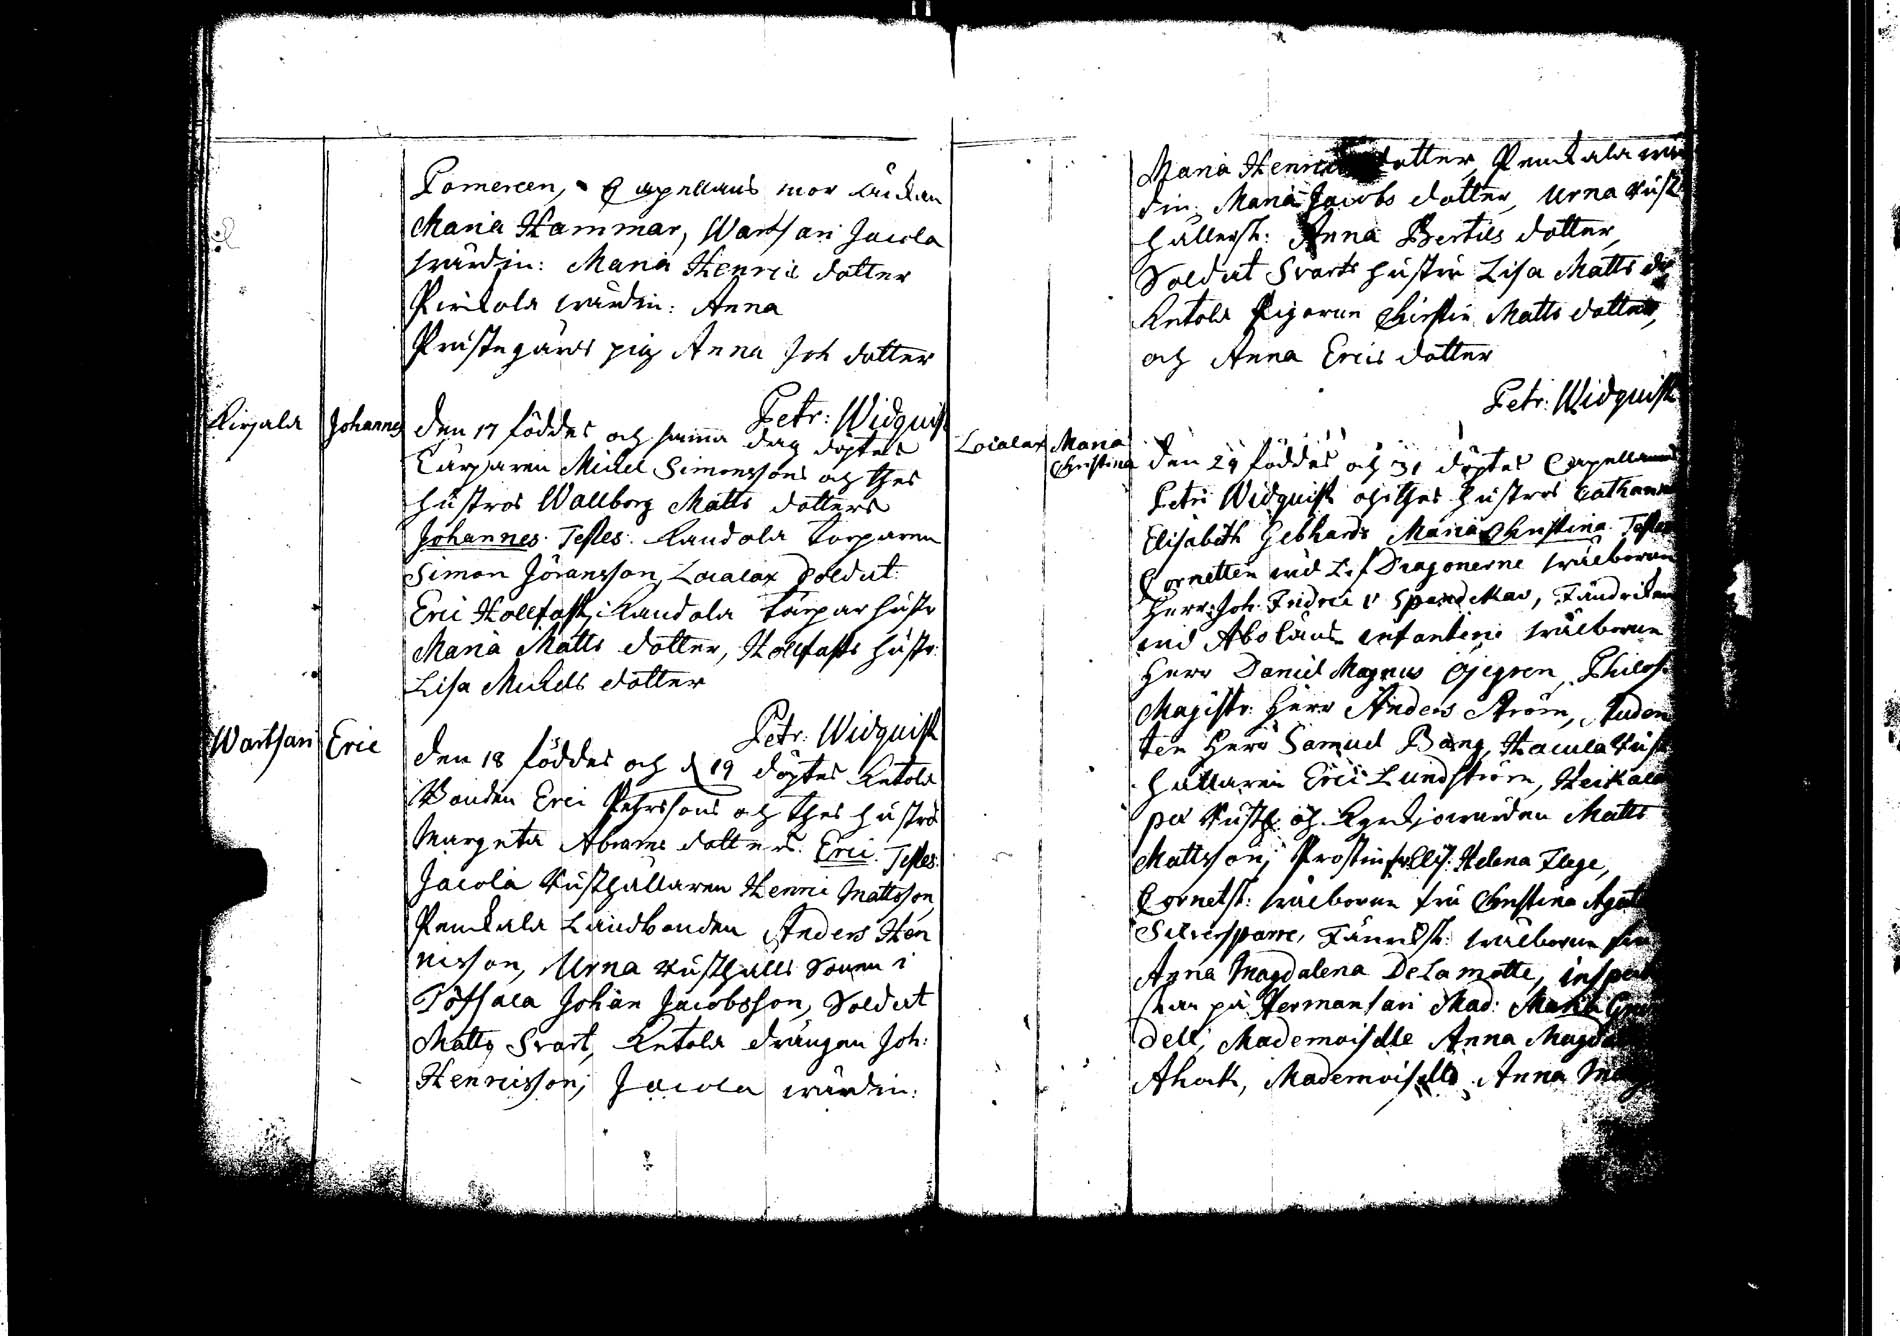 Pomereen, Capellans mor änkan
Maria Hammar, Wartsari Jacola
wärdin: Maria Henrics dotter
Pirilola wärdin: Anna
Prästegårds pig Anna Joh dotter
Petr: Widquist
Kirjala Johannes den 17 föddes och samma dag döptes
Torparen Michel Simonssons och thes
hustros Wallborg Matts dotters
Johannes. Testes: Randola torparen
Simon Jöransson, Localax Soldat:
Eric Hollfast; Randola torpar hustr
Maria Matts dotter, Hollfasts hustr:
Lisa Michels dotter
Petr: Widquist
Wartsari Eric den 18 föddes och d 19 döptes Ketola
Bonden Eric Pehrssons och thes hustro
Margreta Abrams dotters Eric. Testes:
Jacola Rusthållaren Henric Mattsson,
Penkala Landbonden Anders Hen
ricsson, Urna rusthålls Sonen i
Töfsala Johan Jacobsson, Soldat
Matts Svart, Ketola drängen Joh:
Henricsson; Jacola wärdin:
Maria Henrics dotter, Penkala wär
din: Maria Jacobs dotter, Urna rust
hållersk: Anna Bertils dotter,
Soldat Svarts hustru Lisa Matts do
Ketola Pigorne Christin Matts dotter,
och Anna Erics dotter
Petr: Widquist
Localax Maria Christina den 29 föddes och 31 döptes Capellanens
Petri Widquist och thes hustros Catharina
Elisabeth Gebhards Maria Christina. Testes
Cornetten wid Lif Dragonerne wälborne
Herr Joh: Fredric v Spandekau, Fändricken
wid Åbo läns infanterie wälborne
Herr Daniel Magnus Öjegren, Philos:
Magistr: Herr Anders Ström, Studen
ten Herr Samuel Bang, Hacula Rust
hållaren Eric Lundström, Heikala
pä rusth: och Kyrkjowärden Matts
Mattsson; Prostinnan Elis: Helena Flege,
Cornetsk: wälborne fru Christina Agata
Silversparre, Fänriksk: wälborne fru
Anna Magdalena DeLamotte, inspek
skan på Hermansari Mad: Maria
dell, Mademoiselle Anna Magda
Ahork, Mademoiselle Anna